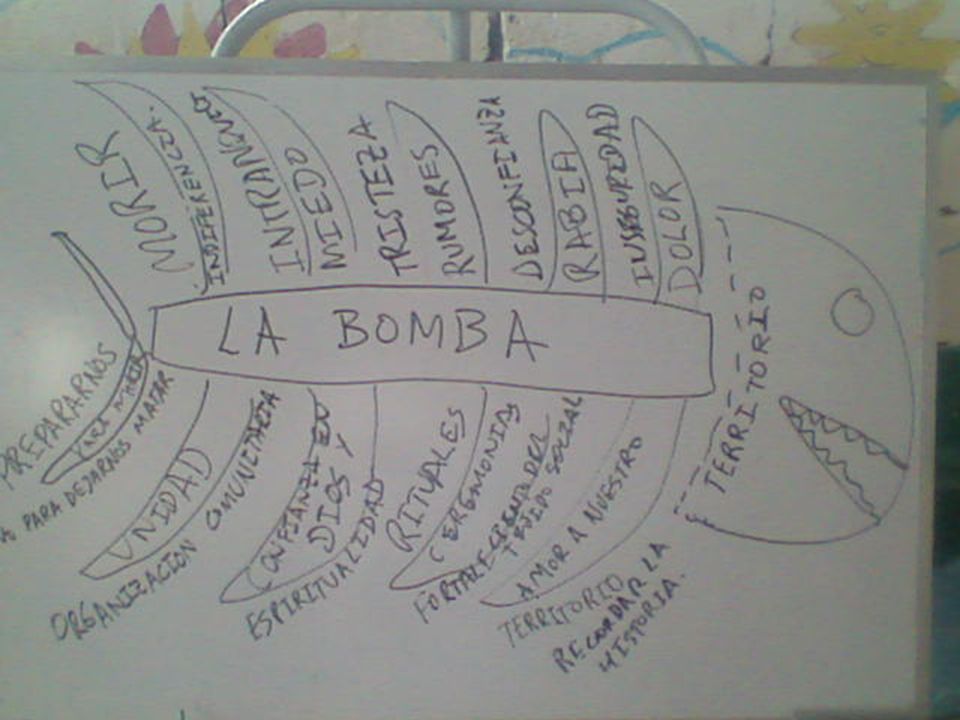 MORIR
INDIFERENCIA.
MIEDO
TRISTEZA
RUMORES
DESCONFIANZA
RABIA
INSEGURIDAD
DOLOR
LA BOMBA
TERRITORIO
PREPARARNOS
PARA
PARA DEJARNOS MATAR
UNIDAD
ORGANIZACION COMUNITARIA
CONFIANZA EN
DIOS Y
ESPIRITUALIDAD
RITUALES
CEREMONIAS
FORTALECER DEL
TEJIDO SOCIAL
AMOR A NUESTRO
TERRITORIO
RECORDAR LA
HISTORIA.